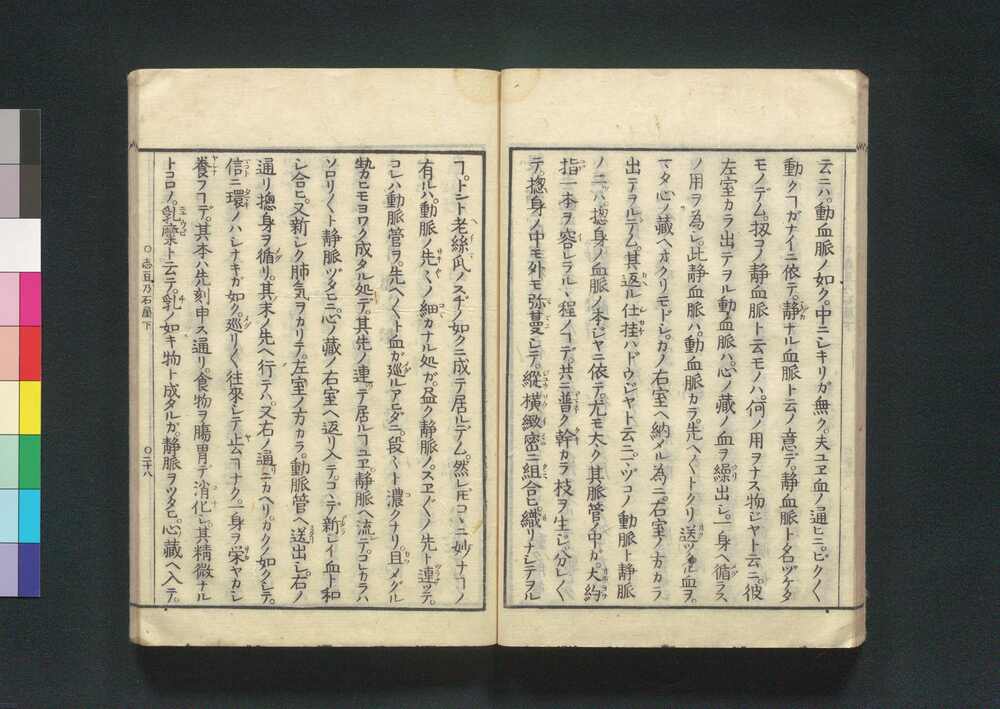 云ニハ。動血脈ノ如ク。中ニシキリガ無ク。夫ユヱ血ノ通ヒニ。ピクく
動クヿガナイニ依テ。静ナル血脈ト云ノ意デ。静血脈ト名ヅケタ
モノデム。扨コノ静血脈ト云モノハ。何ノ用ヲナス物ジヤト云ニ。彼
左室カラ出テヲル動血脈ハ。心ノ藏ノ血ヲ繰出シ。一身ヘ循ラス
ノ用ヲ為シ。此静血脈ハ。動血脈カラ先ヘくトクリ送ツタル血ヲ。
マタ心ノ藏ヘオクリモドシ。カノ右室ヘ納メル為ニ。右室ノ方カラ
出テヲルデム。其返ル仕掛ハドウジヤト云ニ。マヅコノ動脈ト静脈
ノ二ハ。摠身ノ血脈ノ本ジヤニ依テ。尤モ太ク其脈管ノ中ガ。大約
指一本ヲ容レラルヽ程ノヿデ。共ニ普ク幹カラ枝ヲ生シ。分レく
テ。摠身ノ中モ外モ弥蔓シテ。縱横緻密ニ組合ヒ織リナシテヲル
ヿ。トント老絲瓜ノスヂノ如クニ成テ居ルデム。然レ𪜈コヽニ妙ナヿノ
有ルハ。動脈ノ先くノ細カナル処ガ。盡ク静脈ノ。スヱくノ先ト連ツテ。
コレハ動脈管ヲ。先ヘくト血ガ巡ルアヒダニ。段くト濃クナリ。且メグル
勢カヒモヨワク成タル処デ。其先ノ連テ居ルヿユヱ。静脈ヘ流テ。コレカラハ
ソロリくト静脈ヅタヒニ。心ノ藏ノ右室ヘ返リ入テ。コヽデ新シイ血ト和
シ合ヒ。又新シク肺気ヲカリテ。左室ノ方カラ。動脈管ヘ送出シ。右ノ
通リ摠身ヲ循リ。其末ノ先ヘ行テハ。又右ノ通ニカヘリ。カクノ如クシテ。
信ニ環ノハシナキガ如ク。巡リく往來シテ止ムヿナク。一身ヲ栄ヤカシ
養フヿデ。其本ハ先刻申ス通リ。食物ヲ腸胃デ消化シ。其精微ナル
トコロノ。乳糜ト云テ。乳ノ如キ物ト成タルガ。静脈ヲツタヒ。心藏ヘ入テ。
○志豆乃石屋下
○二十八